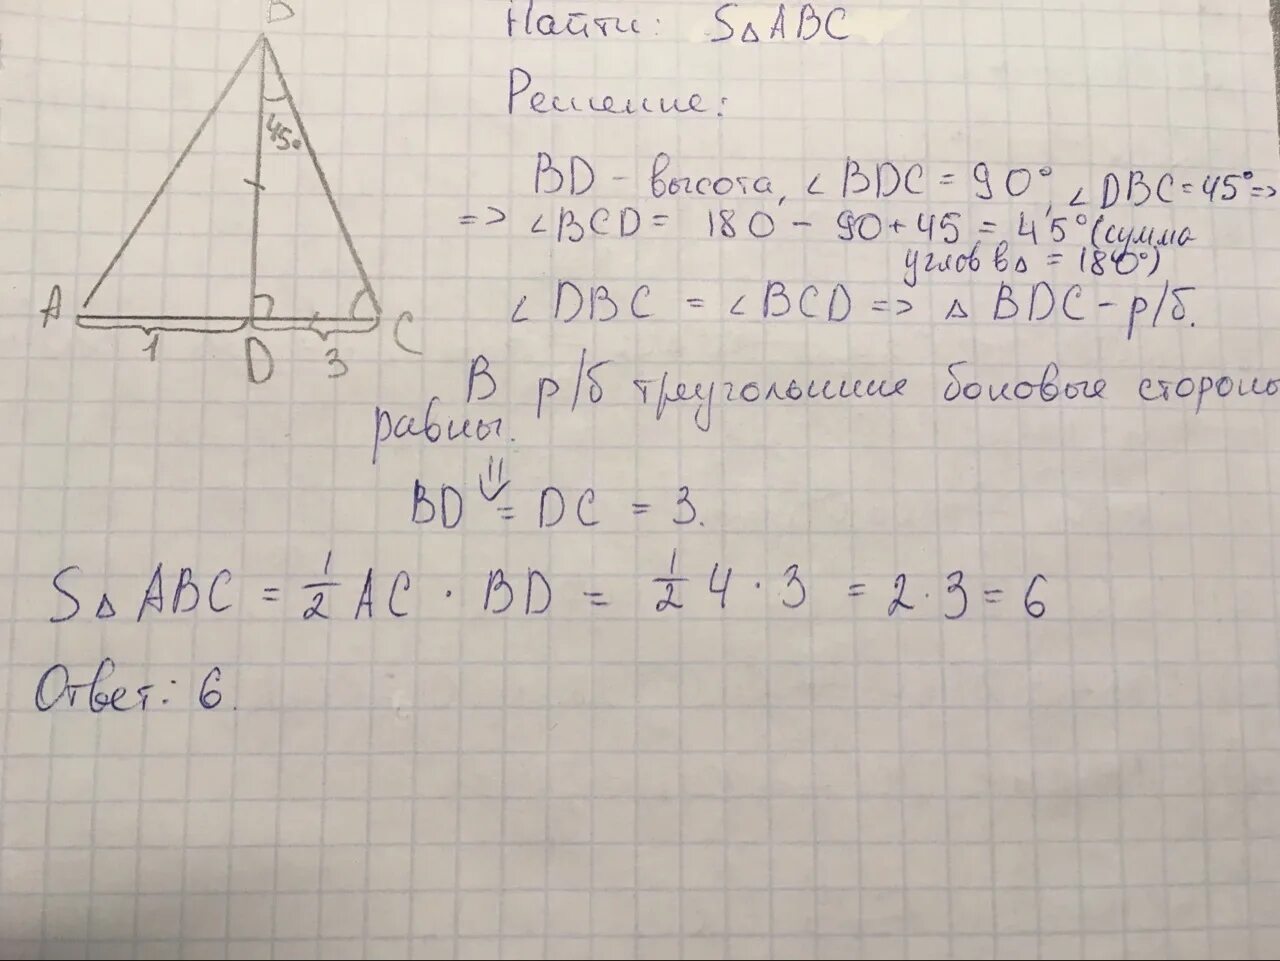 Найти: S△ABC
Решение:
BD - высота, ∠BDC = 90°, ∠DBC = 45° =>
=> ∠BCD = 180 - 90 + 45 = 45° (сумма
углов в △ = 180°)
∠DBC = ∠BCD => △ BDC - р/б.
В р/б треугольнике боковые стороны
равны.
⇓
BD = DC = 3.
S△ ABC = 1/2 AC · BD = 1/2 4 · 3 = 2 · 3 = 6
Ответ: 6.
B
45°
A
1
D
3
C